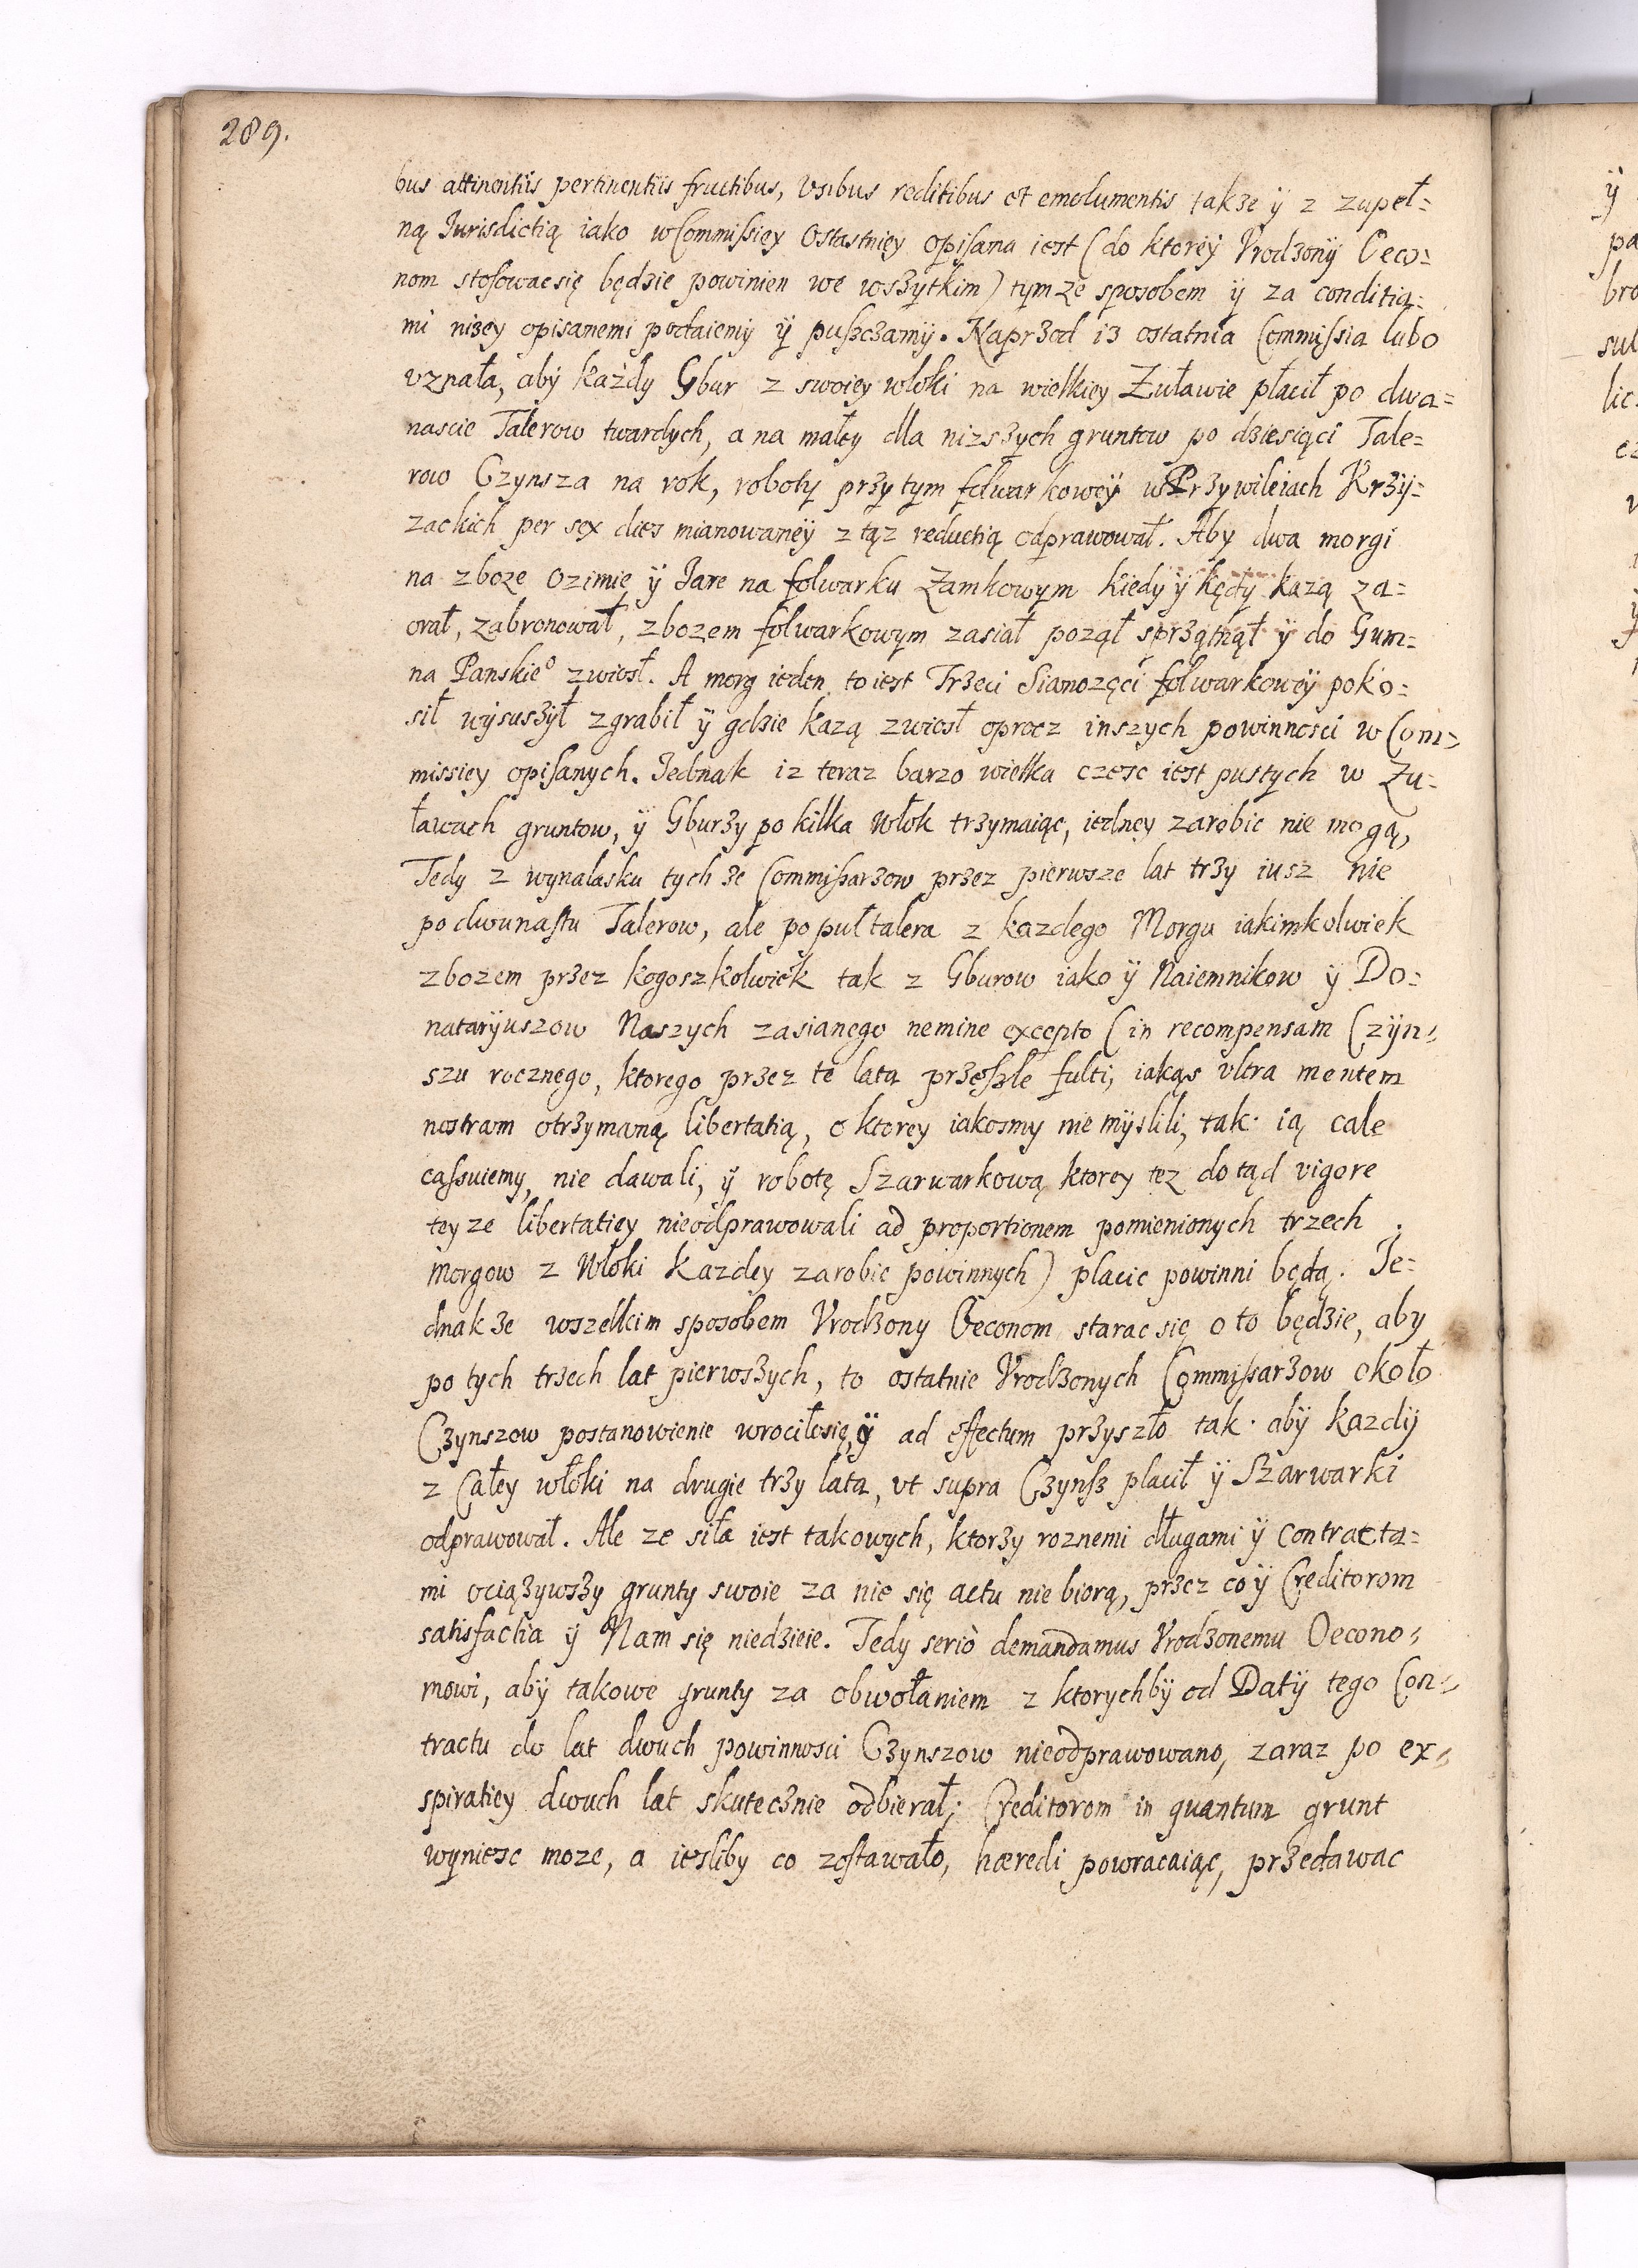 289.
bus attinentiis pertinentiis fructibus, Vsibus reditibus et emolumentis takze ÿ z zupeł=
ną Jurisdictią iako w Commissiey Ostastniey opisana iest (do ktoreÿ Vrodzonÿ Oeco=
nom stosowac się będzie powinien we wszytkim) tymze sposobem ÿ za conditia=
mi nizey opisanemi podaiemy ÿ puszczamÿ. Naprzod iz ostatnia Commissia lubo
vznała, abÿ każdy Gbur z swoiey włoki na wielkiey Zuławie płacił po dwa=
nascie Talerow twardych, a na małey dla nizszych gruntow po dziesiąci Tale=
row Czynsza na rok, roboty przy tym folwarkoweÿ w Przywileiach Krzÿ=
zackich per sex dies mianowaneÿ z tąz reductią odprawował. Aby dwa morgi
na zboze ozimie ÿ Jare na folwarku Zamkowym kiedy ÿ kędy kazą za=
orał, zabronował, zbozem folwarkowym zasiał pozął sprzątnął ÿ do Gum=
na Panskie° zwiosł. A morg ieden to iest Trzeci Sianozęci folwarkoweÿ poko=
sił wÿsuszÿł zgrabił ÿ gdzie kazą zwiosł oprocz inszych powinnosci w Com=
missiey opisanych. Jednak iz teraz barzo wielka czesc iest pustych w Zu=
ławach gruntow, ÿ Gburzy po kilka Włok trzymaiąc, iedney zarobic nie mogą,
Tedy z wynalasku tych ze Commissarzow przez pierwsze lat trzy iusz nie
po dwunastu Talerow, ale po puł talera z kazdego Morgu iakimkolwiek
zbozem przez kogoszkolwiek tak z Gburow iako ÿ Naiemnikow ÿ Do=
natarÿuszow Naszych zasianego nemine excepto (in recompensam Czÿn=
szu rocznego, ktorego przez te lata przeszle fulti, iakąs vltra mentem
nostram otrzymaną libertatią, o ktorey iakosmy nie mÿslili, tak ią cale
cassuiemy, nie dawali, ÿ robotę Szarwarkową ktorey tez do tąd vigore
tey ze libertatiey nieodprawowali ad proportionem pomienionych trzech
morgow z Włoki Kazdey zarobic powinnych) placic powinni będą. Je=
dnak ze wszelkim sposobem Vrodzony Oeconom starac się o to będzie, aby
po tych trzech lat pierwszych, to ostatnie Vrodzonych Commissarzow około
Czynszow postanowienie wrociłosię, ÿ ad effectum przyszło tak abÿ kazdÿ
z Całey włoki na drugie trzy lata, vt supra Czynsz placił ÿ Szarwarki
odprawował. Ale ze siła iest takowych, ktorzy roznemi długami ÿ contracta=
mi ociązywszy grunty swoie za nie się actu nie biorą, przez co ÿ Creditorom
satisfactia ÿ Nam się niedzieie. Tedy seriò demandamus Vrodzonemu Oecono=
mowi, abÿ takowe grunty za obwołaniem z ktorychbÿ od Datÿ tego Con=
tractu do lat dwuch powinnosci Czynszow nieodprawowano, zaraz po ex=
spiratiey dwuch lat skutecznie odbierał; Creditorom in quantum grunt
wyniesc moze, a iesliby co zostawało, hæredi powracaiąc, przedawac